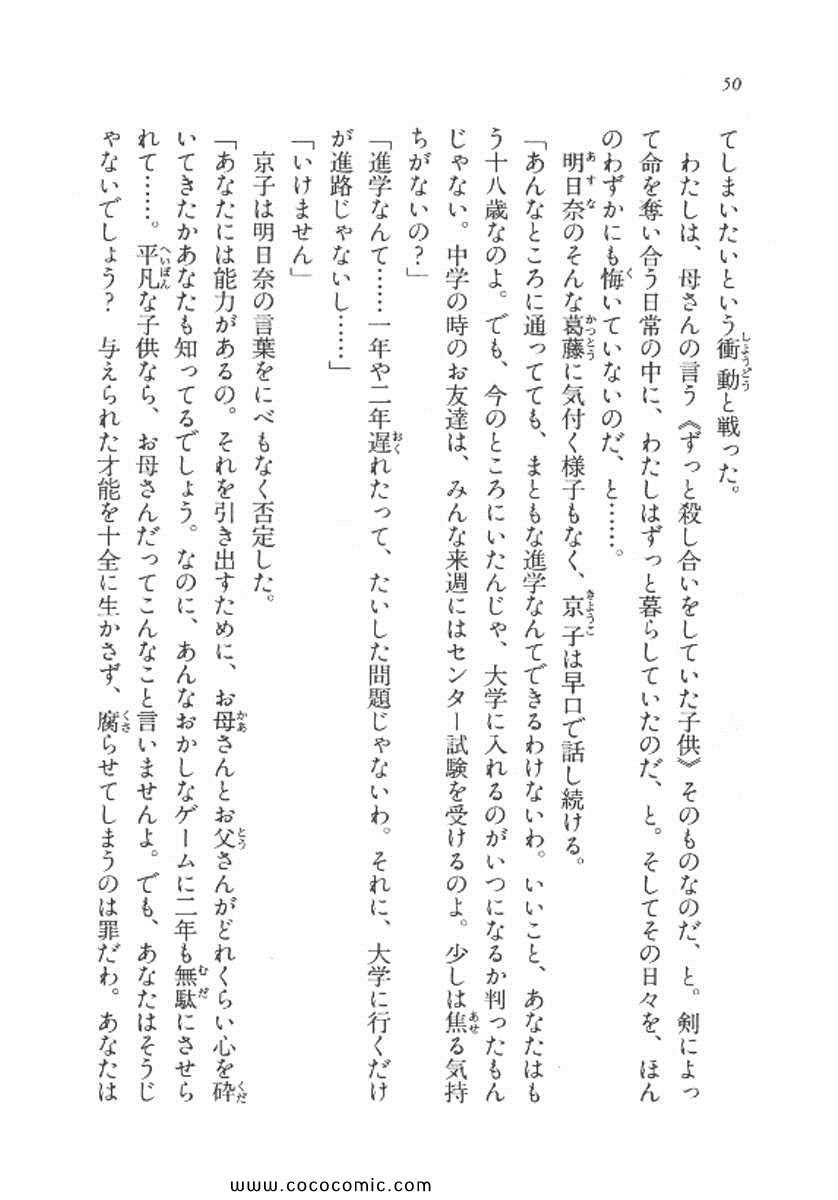 50
てしまいたいという衝動と戦った。
　わたしは、母さんの言う《ずっと殺し合いをしていた子供》そのものなのだ、と。剣によっ
て命を奪い合う日常の中に、わたしはずっと暮らしていたのだ、と。そしてその日々を、ほん
のわずかにも悔いていないのだ、と……。
　明日奈のそんな葛藤に気付く様子もなく、京子は早口で話し続ける。
「あんなところに通ってても、まともな進学なんてできるわけないわ。いいこと、あなたはも
う十八歳なのよ。でも、今のところにいたんじゃ、大学に入れるのがいつになるか判ったもん
じゃない。中学の時のお友達は、みんな来週にはセンター試験を受けるのよ。少しは焦る気持
ちがないの？」
「進学なんて……一年や二年遅れたって、たいした問題じゃないわ。それに、大学に行くだけ
が進路じゃないし……」
「いけません」
　京子は明日奈の言葉をにべもなく否定した。
「あなたには能力があるの。それを引き出すために、お母さんとお父さんがどれくらい心を砕
いてきたかあなたも知ってるでしょう。なのに、あんなおかしなゲームに二年も無駄にさせら
れて……。平凡な子供なら、お母さんだってこんなこと言いませんよ。でも、あなたはそうじ
ゃないでしょう？　与えられた才能を十全に生かさず、腐らせてしまうのは罪だわ。あなたは
www.cococomic.com